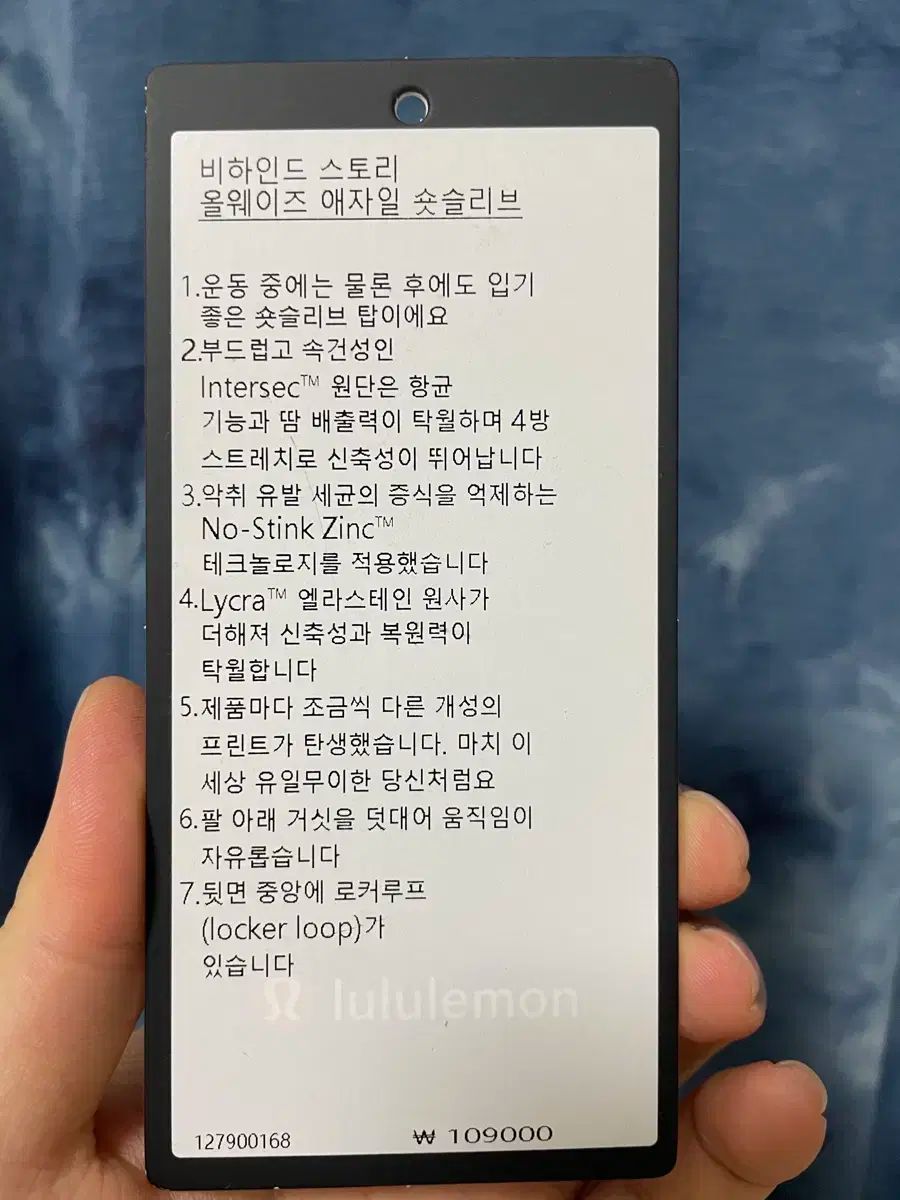 비하인드 스토리
올웨이즈 애자일 숏슬리브
1.운동 중에는 물론 후에도 입기
좋은 숏슬리브 탑이에요
2.부드럽고 속건성인
Intersec™ 원단은 항균
기능과 땀 배출력이 탁월하며 4방
스트레치로 신축성이 뛰어납니다
3.악취 유발 세균의 증식을 억제하는
No-Stink Zinc™
테크놀로지를 적용했습니다
4.Lycra™ 엘라스테인 원사가
더해져 신축성과 복원력이
탁월합니다
5.제품마다 조금씩 다른 개성의
프린트가 탄생했습니다. 마치 이
세상 유일무이한 당신처럼요
6.팔 아래 거싯을 덧대어 움직임이
자유롭습니다
7.뒷면 중앙에 로커루프
(locker loop)가
있습니다
lululemon
127900168 ₩ 109000